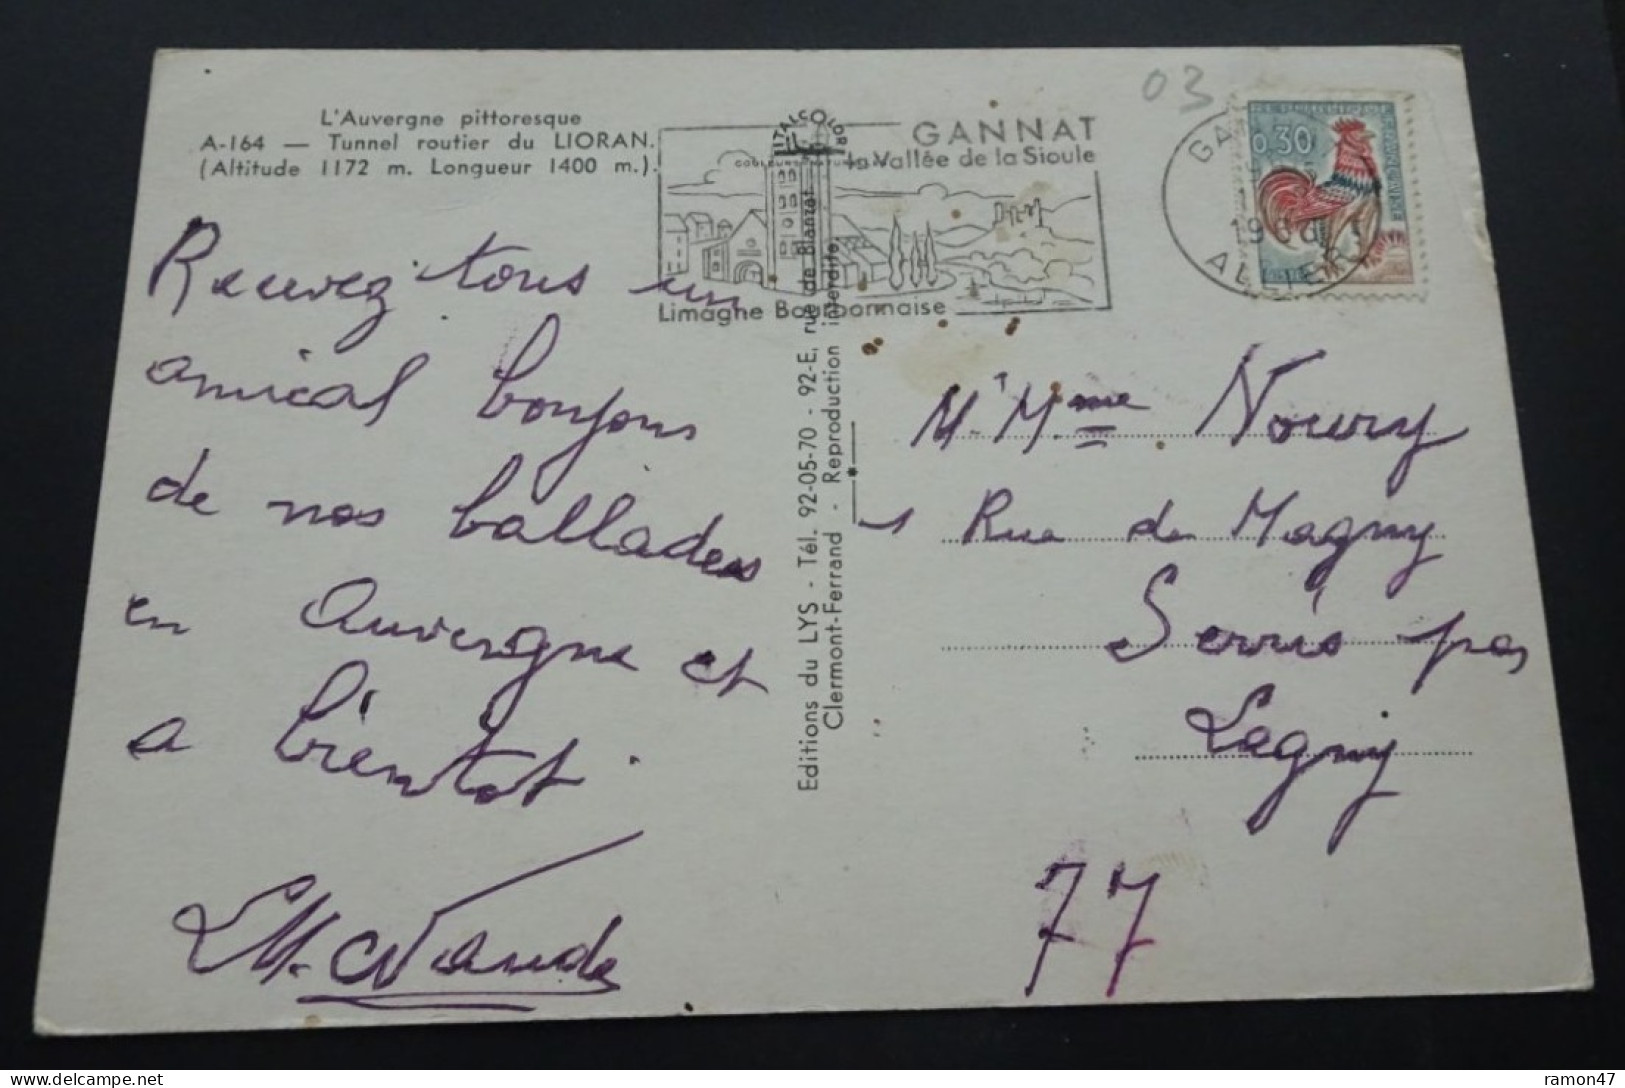 L'Auvergne pittoresque
A-164 — Tunnel routier du LIORAN.
(Altitude 1172 m. Longueur 1400 m.).
Recevez tous un
amical bonjour
de nos ballades
en Auvergne et
a bientot.
ITALCOLOR
GANNAT
la Vallée de la Sioule
Limagne Bourbonnaise
03
0,30
1966
ALLIER
Editions du LYS - Tél. 92-05-70 - 92-E, rue de Blanzat
Clermont-Ferrand - Reproduction interdite.
Mr Mme Noury
1 Rue de Magny
Serris par
Lagny
77
ramon47